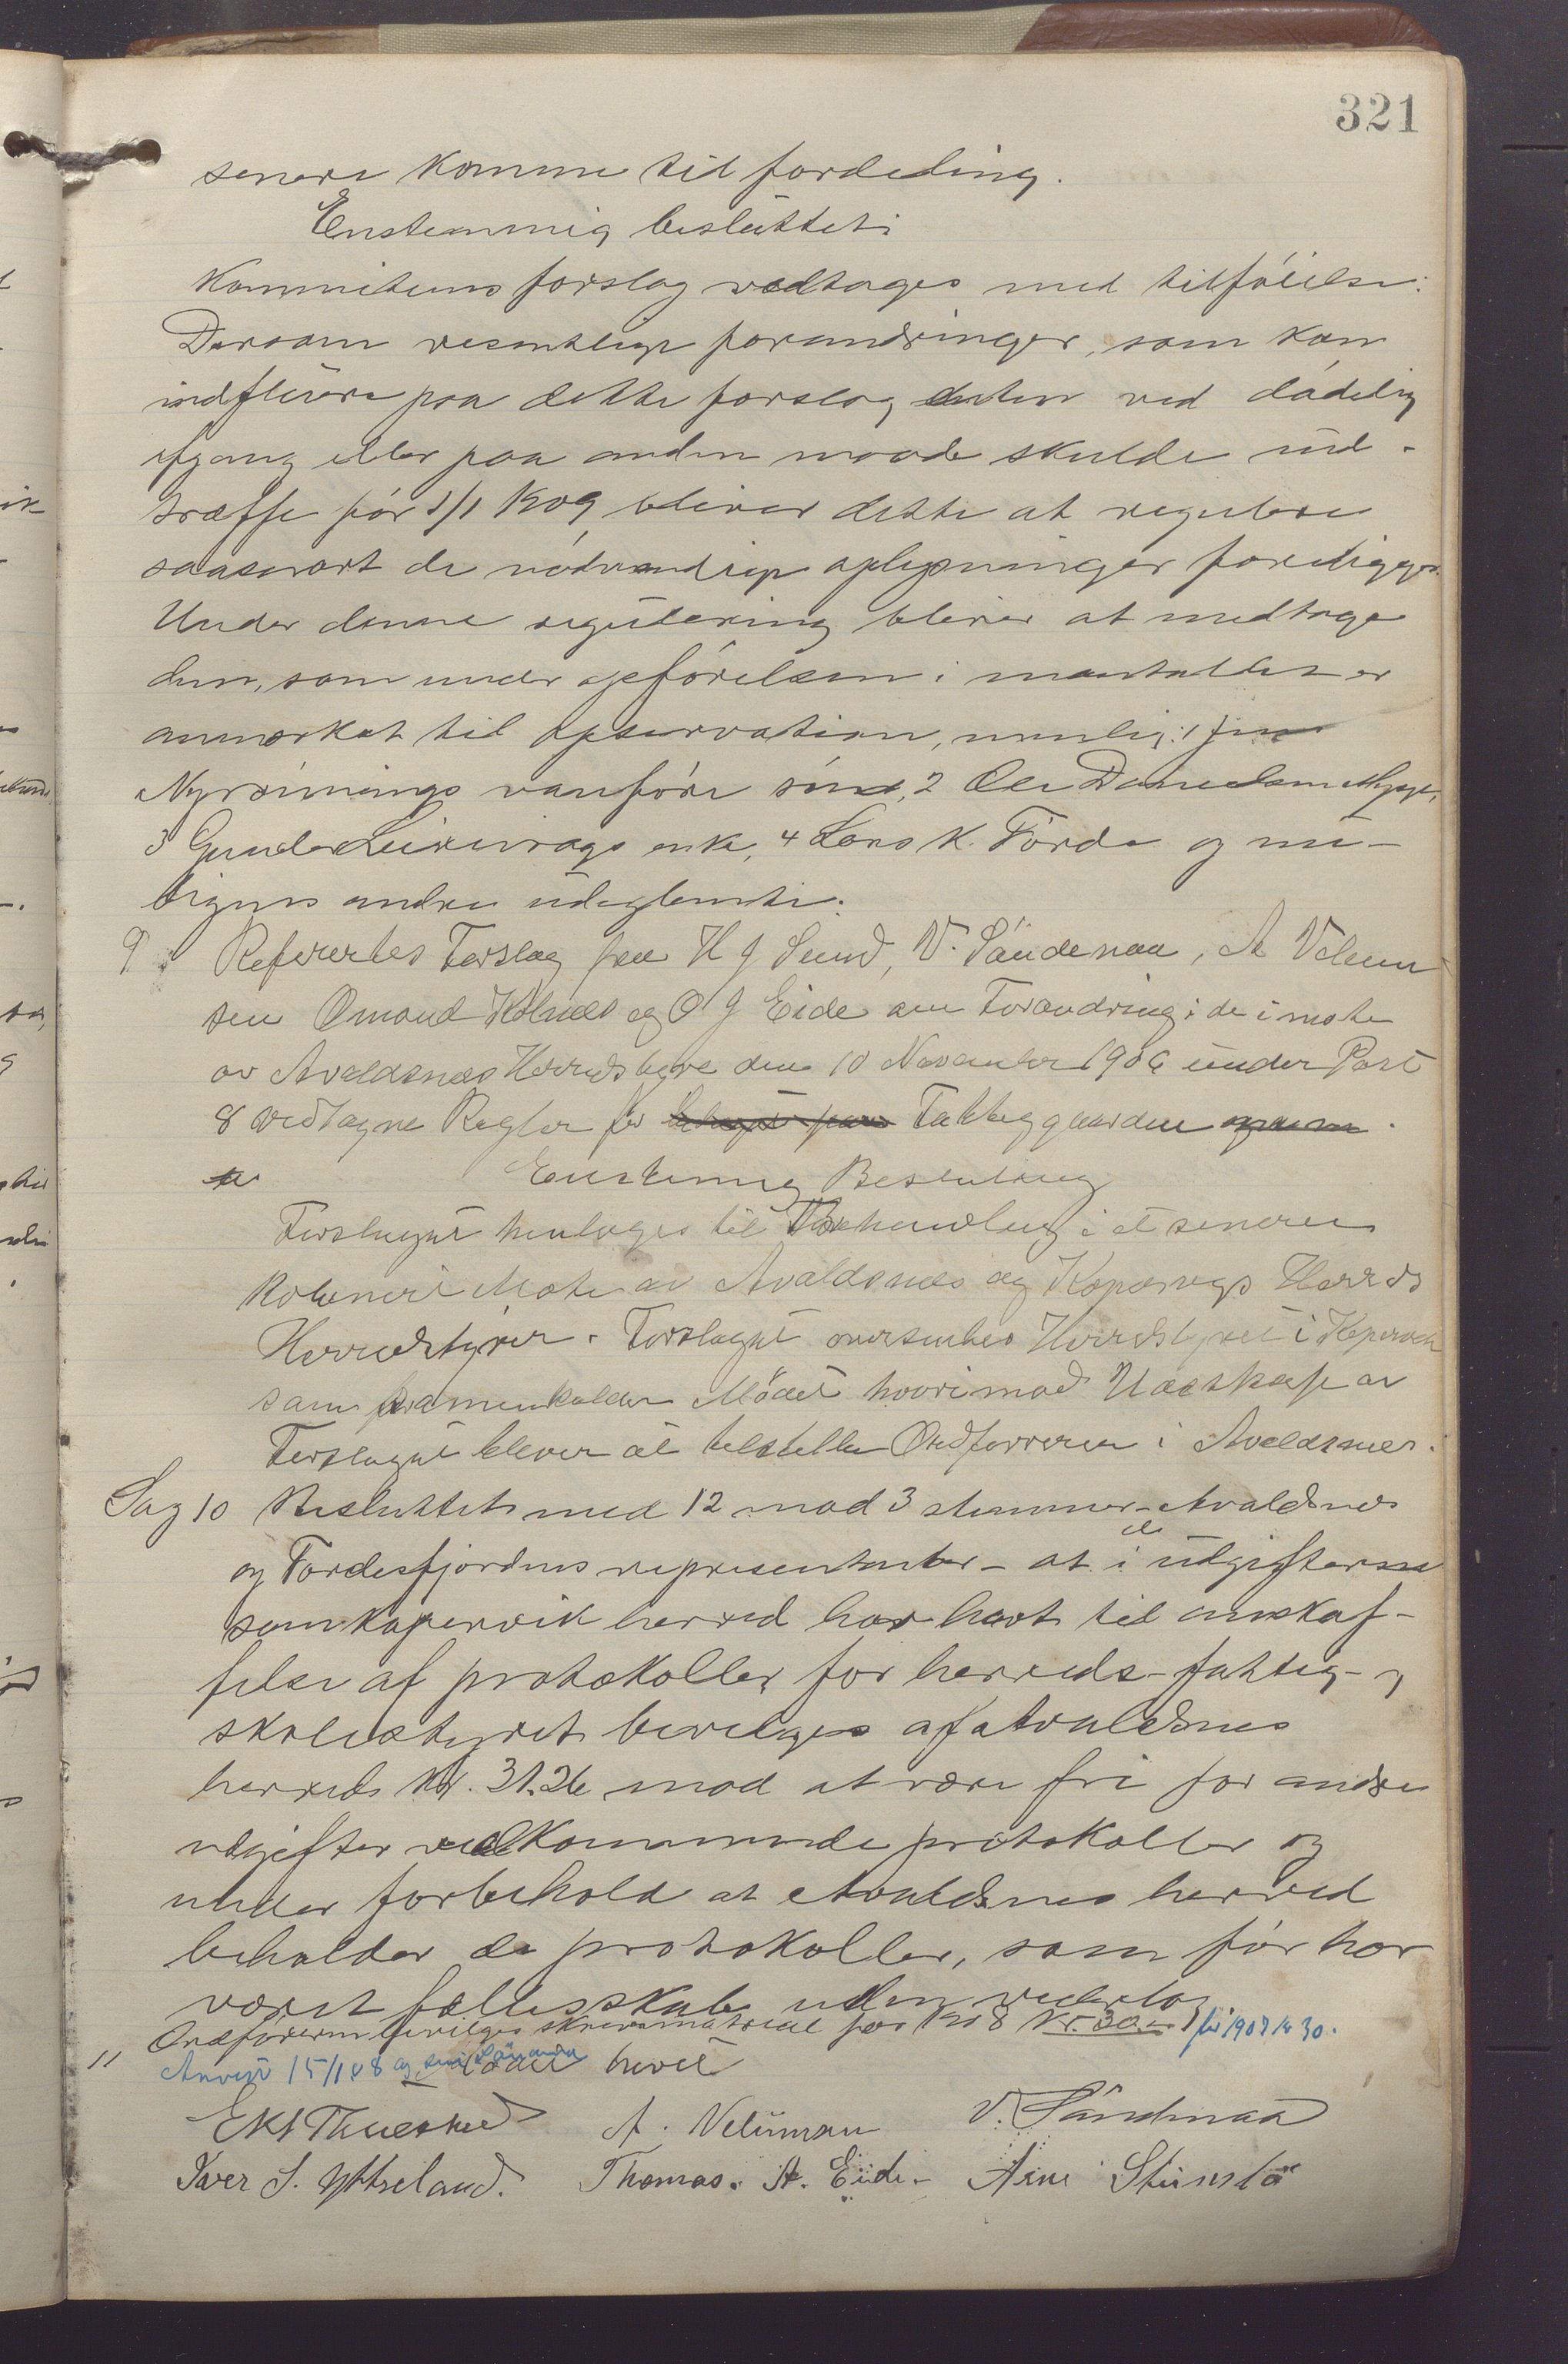 321
senere komme til fordeling.
Enstemmig besluttet:
Kommiteens forslag vedtages med tilføielse:
Dersom vesentlige forandringer, som kan
indfluere paa dette forslag enten ved dødelig
afgang eller paa anden maade skulde ind-
træffe før 1/1 1909 bliver dette at regulere
saasnart de nødvendige oplysninger foreligger.
Under denne regulering bliver at medtage
dem, som under opførelsen i mantallet er
anmerket til observation, nemlig: 1
vanføre sønd, 2 Ole Danielsen
3 enke, 4 Lars K. Førde og mu-
ligens andre udeglemte.
9 Referertes Forslag fra H J Sund, V. Sandenaa, A Velum
sen Omand Kolnes og O J Eide om Forandring i de i møte
av Avaldsnes Herredstyre den 10 November 1906 under Post
8 vedtagne Regler for Fattiggaarden
Enstemmig Beslutning
Forslaget henlægges til Behandling i et senere
kombinert Møte av Avaldsnes og Kopervigs Herreds
Herredstyrer. Forslaget oversendes Herredstyret i Kopervik
som sammenkalder Mødet hvorimod Udskrift av
Forslaget bliver at tilstille Ordføreren i Avaldsnes.
Sag 10 Besluttet med 12 mod 3 stemmer - Avaldsnes
og Førdesfjordens representanter - at i de udgifterne
som Kopervik herred har havt til anskaf-
felse af protokoller for herreds- fattig- og
skolestyret bevilges af Avaldsnes
herred kr. 31.26 mod at være fri for andre
udgifter vedkommende protokoller og
under forbehold at Avaldsnes herred
beholder de protokoller, som før har
været fællesskab uden vederlag
11 Ordføreren bevilges skrivematriel for 1908 Kr. 30.- for 1907 kr 30.
Anvist 15/1 08 Mødet hævet
A. Velumsen V. Sandenaa
Iver S. Ytreland. Thomas. A. Eide - Arne Stenslø